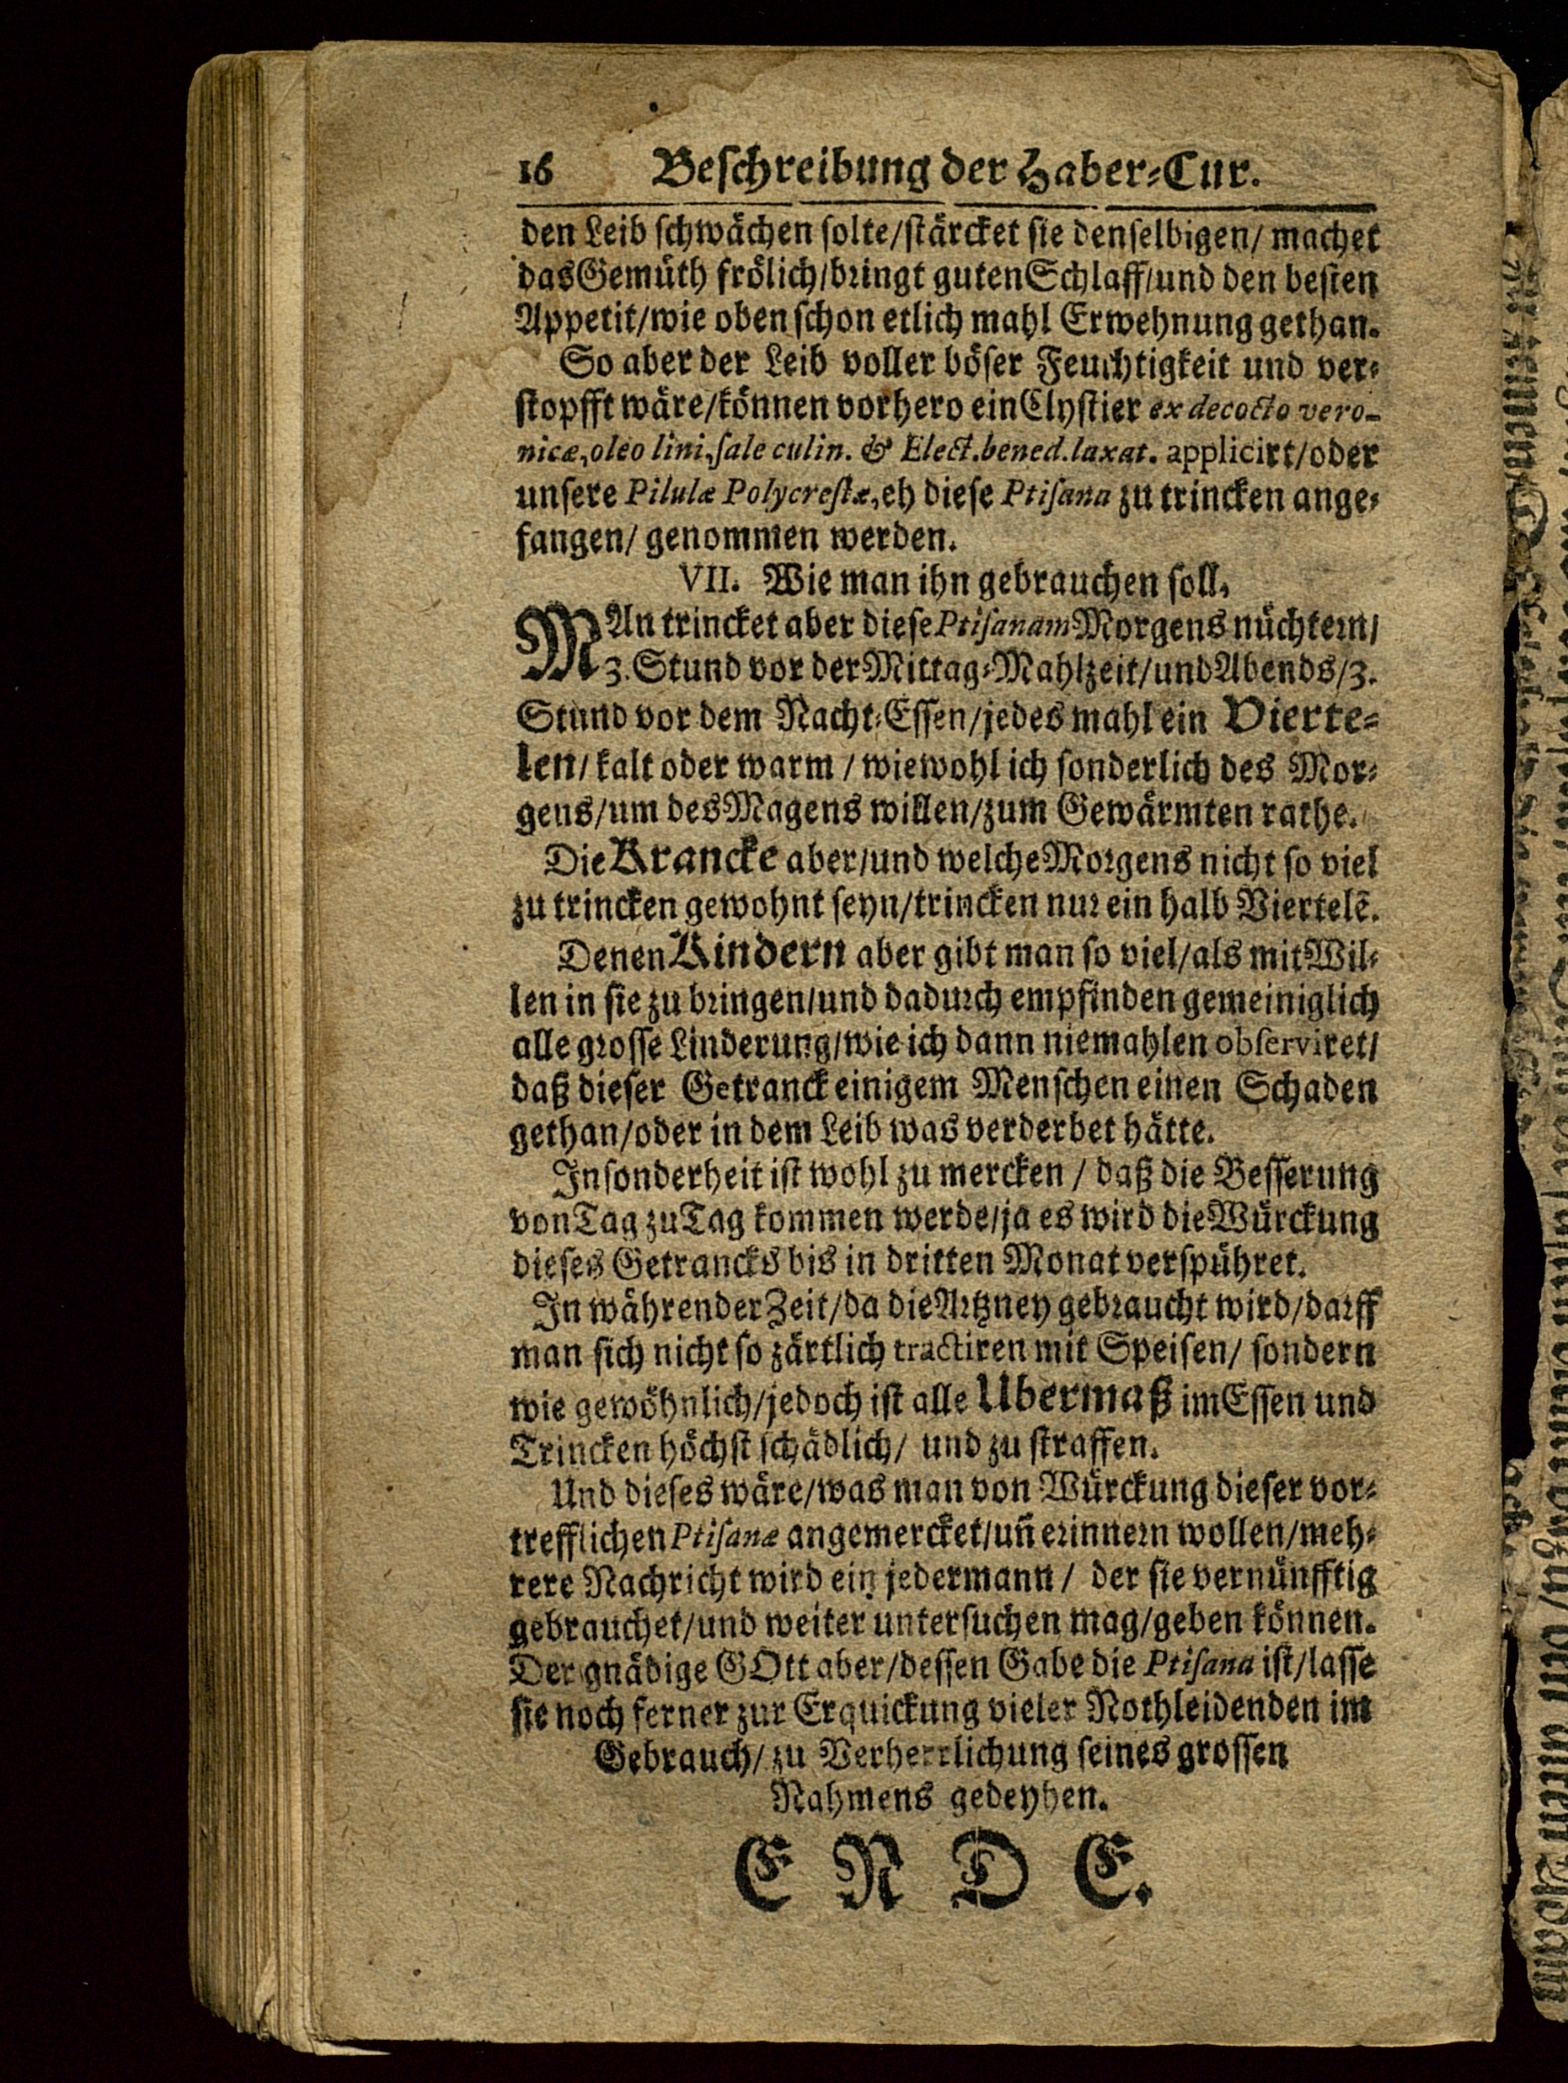 16 Beschreibung der Haber-Cur.
den Leib schwächen solte/stärcket sie denselbigen/ machet
das Gemüth frölich/bringt guten Schlaff/und den besten
Appetit/wie oben schon etlich mahl Erwehnung gethan.
So aber der Leib voller böser Feuchtigkeit und ver-
stopfft wäre/können vorhero ein Clystier ex decocto vero-
nicæ, oleo lini, sale culin. & Elect. bened. laxat. applicirt/oder
unsere Pilulæ Polycrestæ, eh diese Ptisana zu trincken ange-
fangen/ genommen werden.
VII. Wie man ihn gebrauchen soll.
MAn trincket aber diese Ptisanam Morgens nüchtern/
3. Stund vor der Mittag-Mahlzeit/und Abends/3.
Stund vor dem Nacht-Essen/jedes mahl ein Vierte-
len/ kalt oder warm / wiewohl ich sonderlich des Mor-
gens/um des Magens willen/zum Gewärmten rathe.
Die Krancke aber/und welche Morgens nicht so viel
zu trincken gewohnt seyn/trincken nur ein halb Viertelē.
Denen Kindern aber gibt man so viel/als mit Wil-
len in sie zu bringen/und dadurch empfinden gemeiniglich
alle grosse Linderung/wie ich dann niemahlen observiret/
daß dieser Getranck einigem Menschen einen Schaden
gethan/oder in dem Leib was verderbet hätte.
Insonderheit ist wohl zu mercken / daß die Besserung
von Tag zu Tag kommen werde/ja es wird die Würckung
dieses Getrancks bis in dritten Monat verspühret.
In währender Zeit/da die Artzney gebraucht wird/darff
man sich nicht so zärtlich tractiren mit Speisen/ sondern
wie gewöhnlich/jedoch ist alle Ubermaß im Essen und
Trincken höchst schädlich/ und zu straffen.
Und dieses wäre/was man von Würckung dieser vor-
trefflichen Ptisanæ angemercket/un̄ erinnern wollen/meh-
rere Nachricht wird ein jedermann/ der sie vernünfftig
gebrauchet/und weiter untersuchen mag/geben können.
Der gnädige GOtt aber/dessen Gabe die Ptisana ist/lasse
sie noch ferner zur Erquickung vieler Nothleidenden im
Gebrauch/ zu Verherrlichung seines grossen
Nahmens gedeyhen.
E N D E.